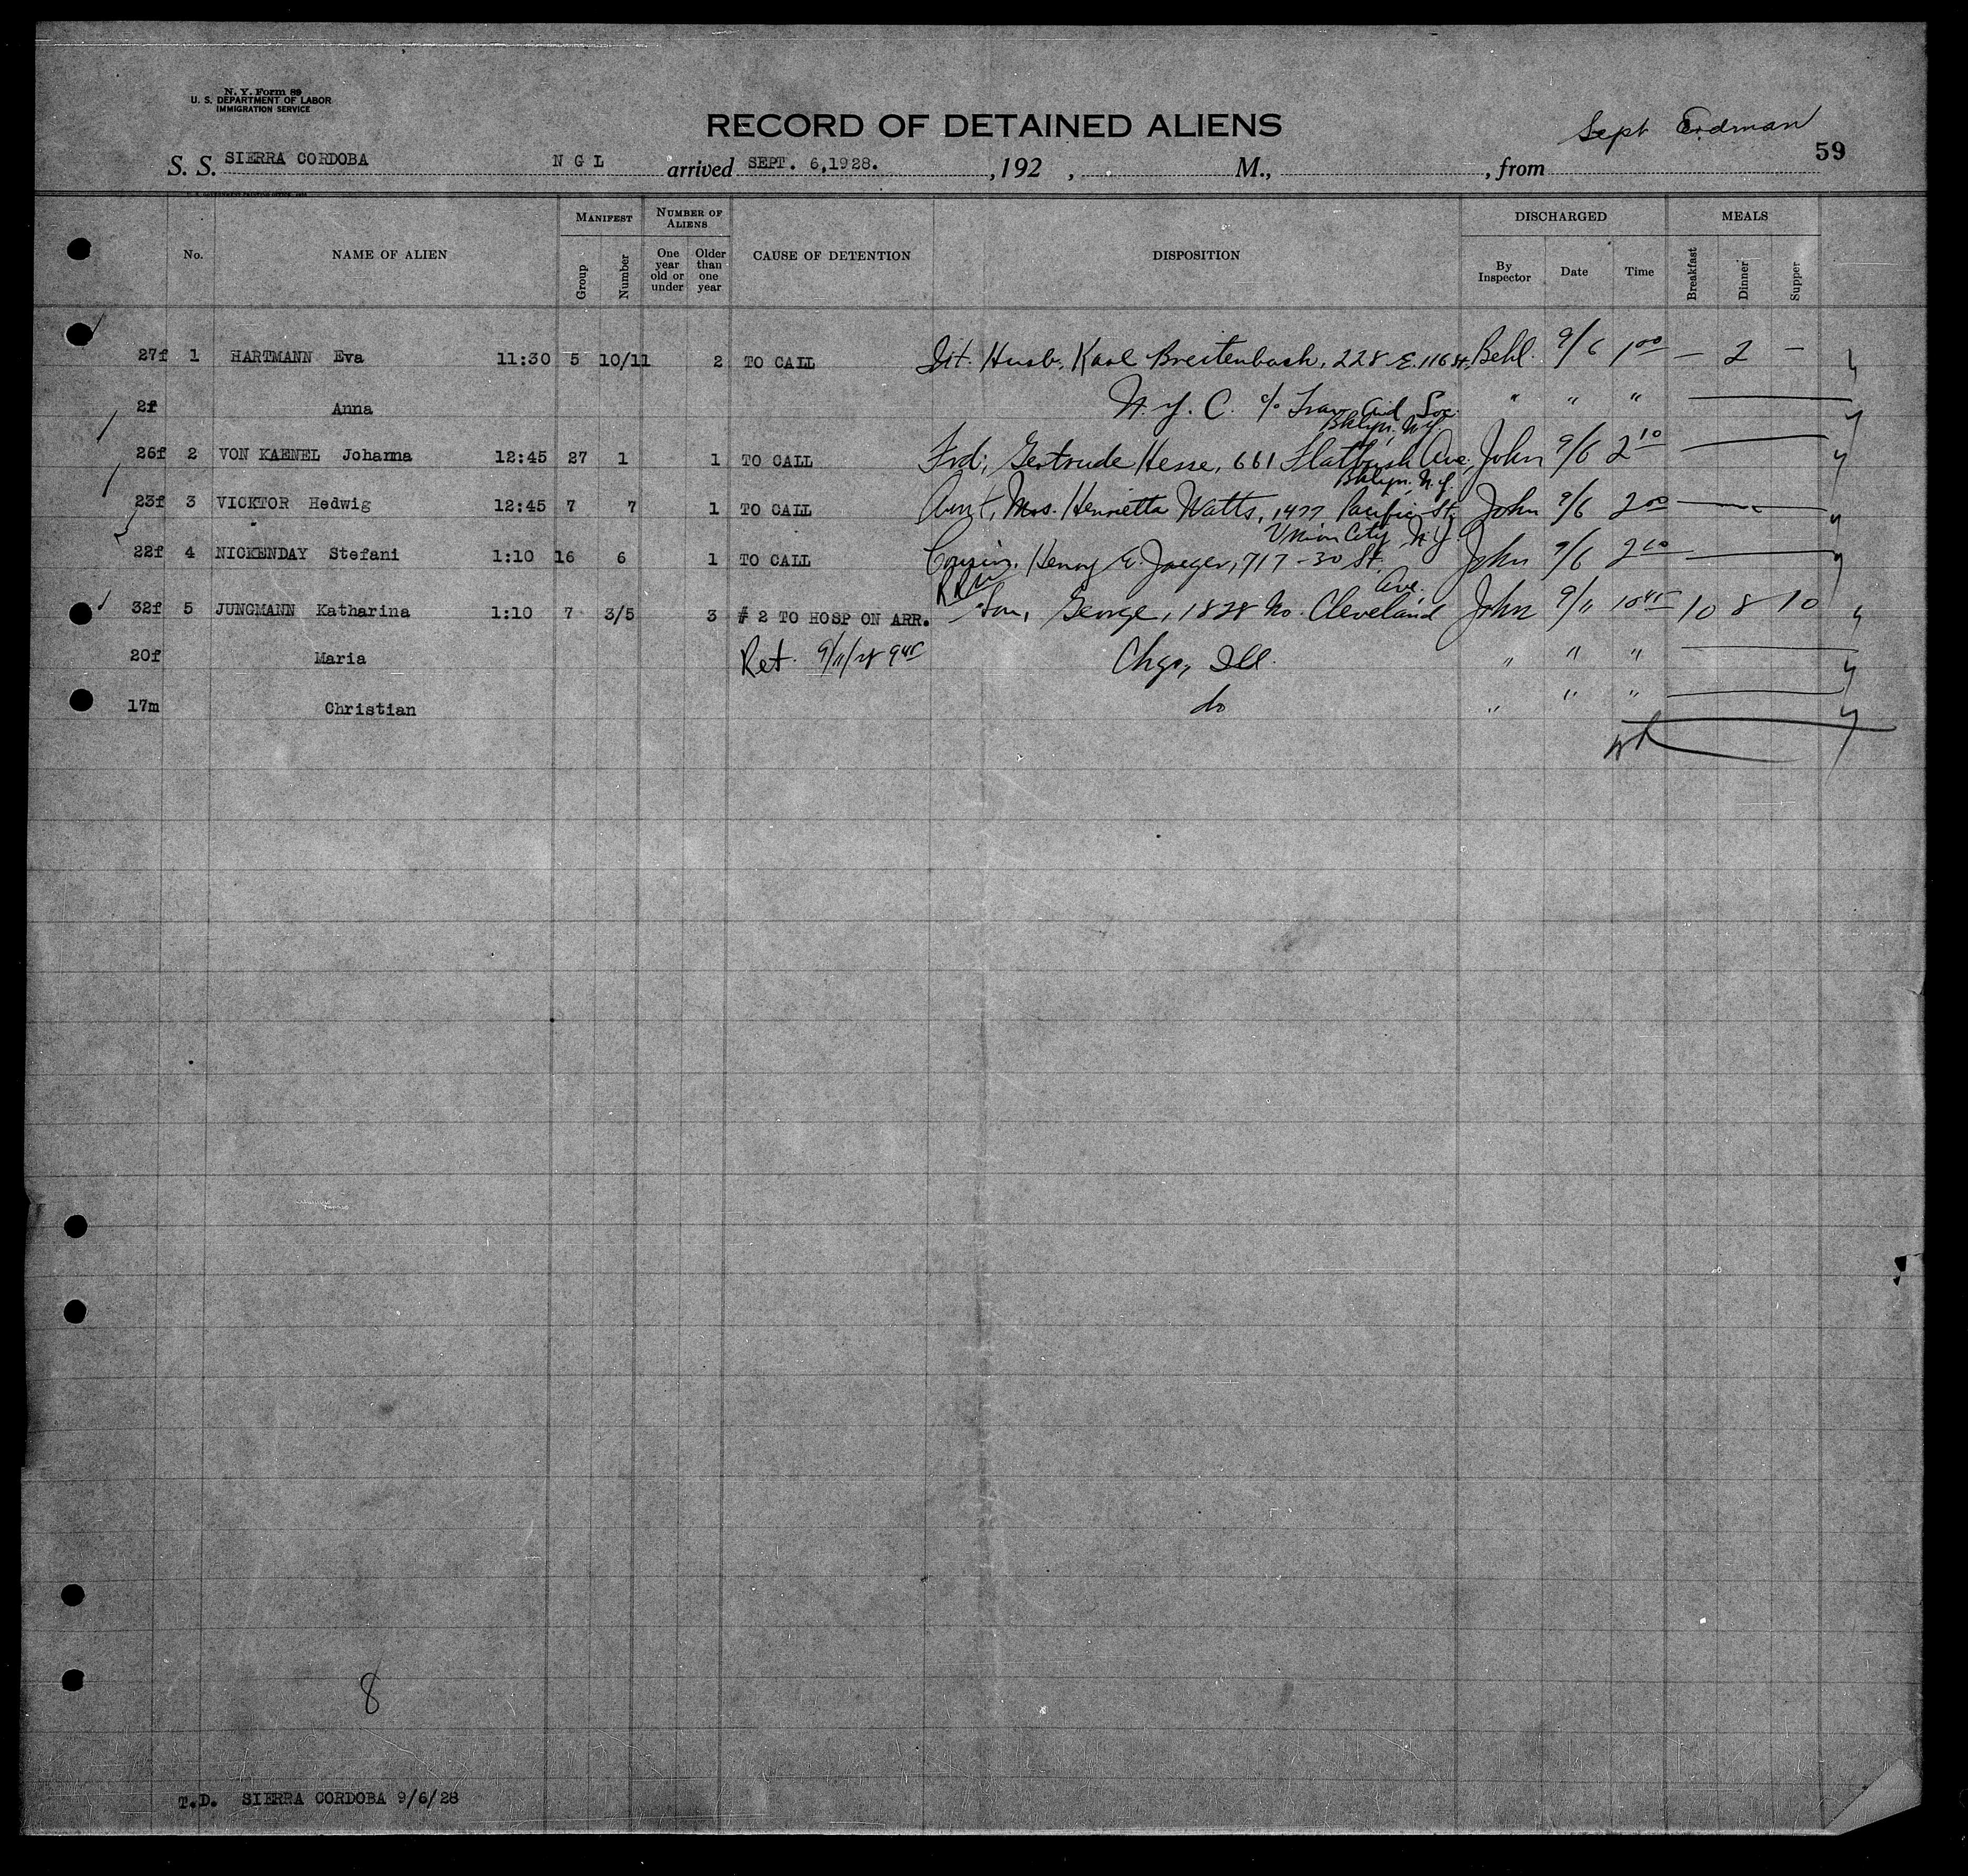 N. Y. Form 89
U. S. DEPARTMENT OF LABOR
IMMIGRATION SERVICE
RECORD OF DETAINED ALIENS
Sept Erdman
59
S. S. SIERRA CORDOBA N G L arrived SEPT. 6,1928. , 192 , M., , from
No. NAME OF ALIEN MANIFEST Group Number NUMBER OF ALIENS One year old or under Older than one year CAUSE OF DETENTION DISPOSITION DISCHARGED By Inspector Date Time MEALS Breakfast Dinner Supper
27f 1 HARTMANN Eva 11:30 5 10/11 2 TO CALL Int. Husb, Karl Breitenbach, 228 E. 116 St. Behl. 9/6 1 00 — 2 —
2f Anna N. Y. C. c/o Trav Aid Soc. " " "
Bklyn. N.Y.
26f 2 VON KAENEL Johanna 12:45 27 1 1 TO CALL Frd; Gertrude Hesse, 661 Flatbush Ave, John 9/6 2 10
Bklyn. N.Y.
23f 3 VICKTOR Hedwig 12:45 7 7 1 TO CALL Aunt, Mrs. Henrietta Watts, 1477 Pacific St. John 9/6 2 00
Union City N.J.
22f 4 NICKENDAY Stefani 1:10 16 6 1 TO CALL Cousin, Henry E. Jaeger, 717 - 30 St. John 9/6 2 00
Ave.
32f 5 JUNGMANN Katharina 1:10 7 3/5 3 # 2 TO HOSP ON ARR. Son, George, 1828 No. Cleveland John 9/11 10 45 10 8 10
20f Maria Ret. 9/11/28 9 45 Chgo, Ill. " " "
17m Christian do " " "
8
T.D. SIERRA CORDOBA 9/6/28